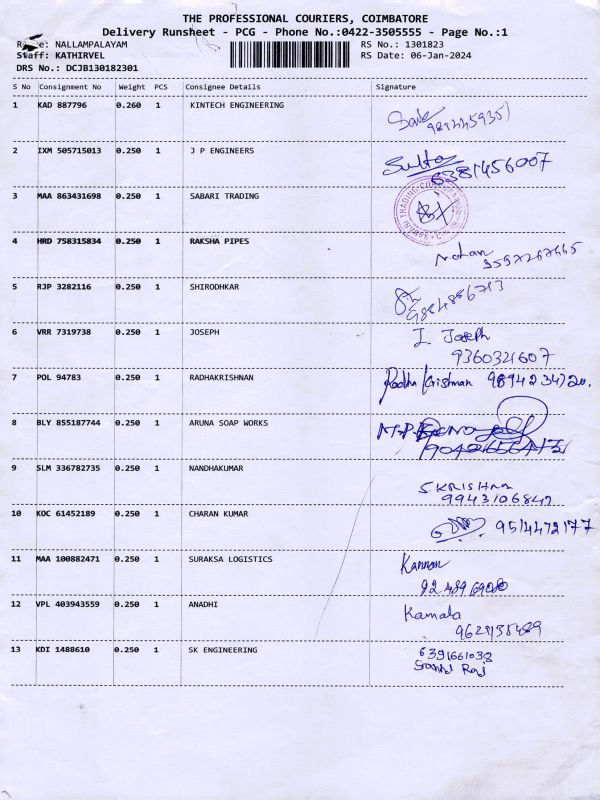 THE PROFESSIONAL COURIERS, COIMBATORE
Delivery Runsheet - PCG - Phone No.:0422-3505555 - Page No.:1
Route: NALLAMPALAYAM RS No.: 1301823
Staff: KATHIRVEL RS Date: 06-Jan-2024
DRS No.: DCJB130182301
S No Consignment No Weight PCS Consignee Details Signature
1 KAD 887796 0.260 1 KINTECH ENGINEERING
2 IXM 505715013 0.250 1 J P ENGINEERS
6381456007
3 MAA 863431698 0.250 1 SABARI TRADING
4 HRD 758315834 0.250 1 RAKSHA PIPES
5 RJP 3282116 0.250 1 SHIRODHKAR
6 VRR 7319738 0.250 1 JOSEPH I Joseph
9360321607
7 POL 94783 0.250 1 RADHAKRISHNAN Radha Krishnan
8 BLY 855187744 0.250 1 ARUNA SOAP WORKS
9 SLM 336782735 0.250 1 NANDHAKUMAR
S.KRISHNA
9943106842
10 KOC 61452189 0.250 1 CHARAN KUMAR 9514472177
11 MAA 100882471 0.250 1 SURAKSA LOGISTICS Kannan
12 VPL 403943559 0.250 1 ANADHI Kamala
13 KDI 1488610 0.250 1 SK ENGINEERING 6391661038